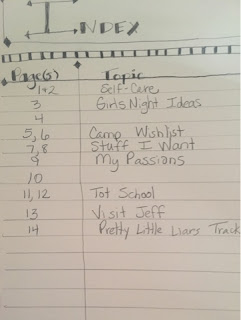 INDEX
Page(s) Topic
1+2 Self-Care
3 Girls Night Ideas
4
5, 6 Camp Wishlist
7, 8 Stuff I Want
9 My Passions
10
11, 12 Tot School
13 Visit Jeff
14 Pretty Little Liars Track